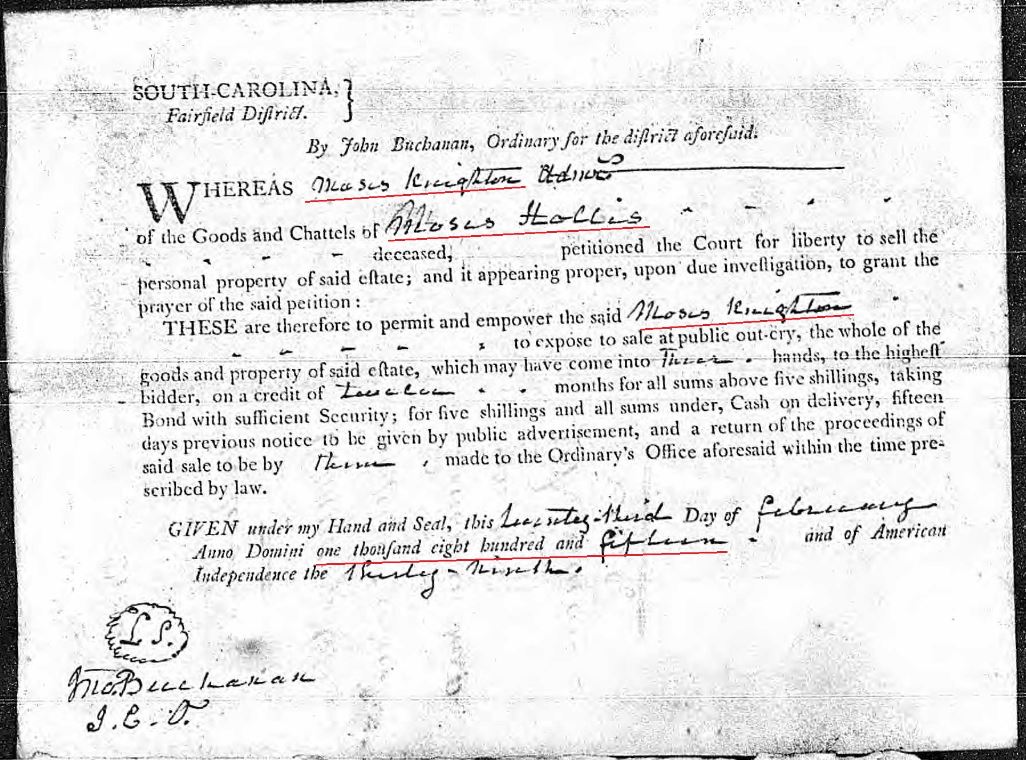 SOUTH-CAROLINA, }
Fairfield Diſtrict.
By John Buchanan, Ordinary for the diſtrict aforeſaid.
WHEREAS Moses Knighton Admor
of the Goods and Chattels of Moses Hollis - - - -
- - - - deceaſed, petitioned the Court for liberty to sell the
perſonal property of said eſtate; and it appearing proper, upon due inveſtigation, to grant the
prayer of the said petition :
THESE are therefore to permit and empower the said Moses Knighton -
- - - - - to expose to sale at public out-cry, the whole of the
goods and property of said eſtate, which may have come into Their . hands, to the higheſt
bidder, on a credit of twelve - - months for all sums above five shillings, taking
Bond with sufficient Security; for five shillings and all sums under, Cash on delivery, fifteen
days previous notice to be given by public advertisement, and a return of the proceedings of
said sale to be by them . made to the Ordinary's Office aforesaid within the time pre-
scribed by law.
GIVEN under my Hand and Seal, this twenty-third Day of february
Anno Domini one thouſand eight hundred and fifteen - and of American
Independence the thirty-Ninth.
L S.
Jno. Buchanan